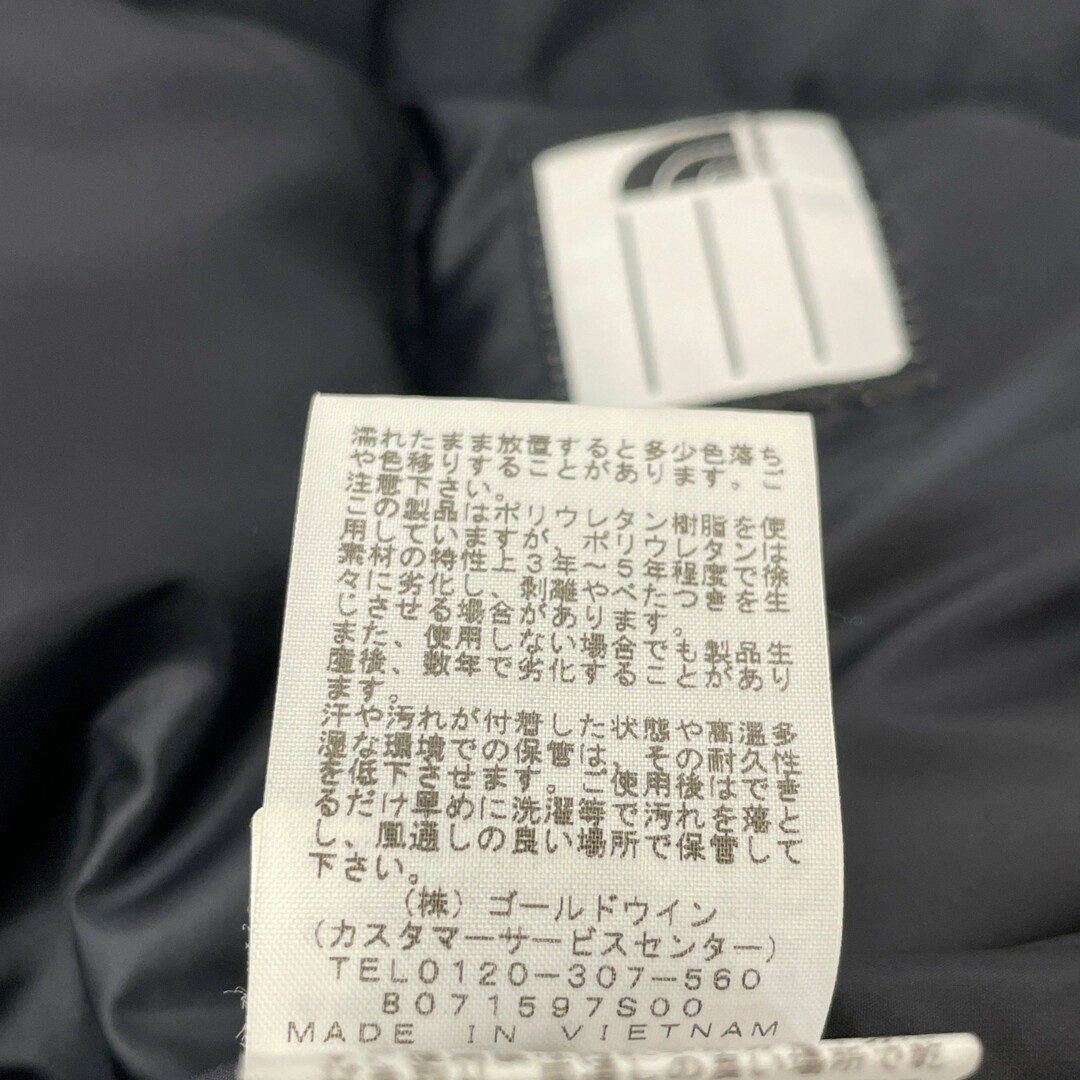 濡れたまま放置すると多少色落ち
や色移りすることがあります。ご
注意下さい。
この製品はポリウレタン樹脂を使
用していますが、ポリウレタンは
素材の特性上3年～5年程度で徐
々に劣化し、剥離やべたつきを生
じさせる場合があります。
また、使用しない場合でも製品生
産後、数年で劣化することがあり
ます。
汗や汚れが付着した状態や高温多
湿な環境での保管は、その耐久性
を低下させます。ご使用後はでき
るだけ早めに洗濯等で汚れを落と
し、風通しの良い場所で保管して
下さい。
（株）ゴールドウイン
（カスタマーサービスセンター）
TEL0120-307-560
B071597S00
MADE IN VIETNAM